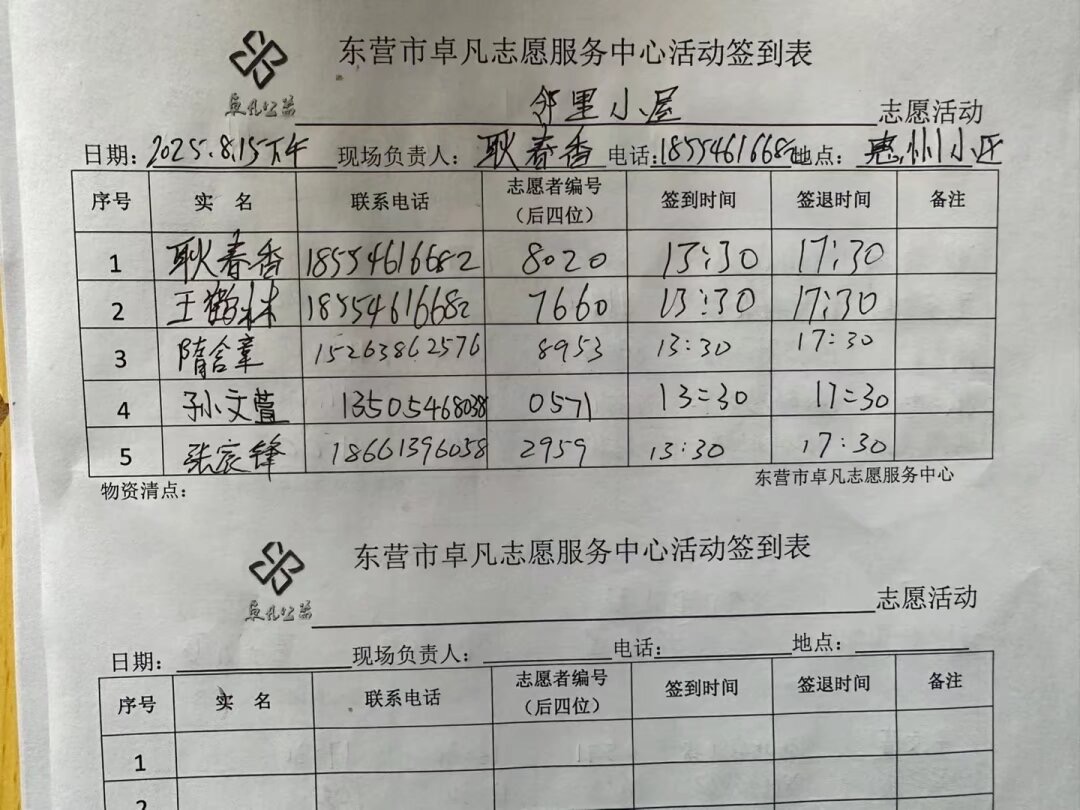 东营市卓凡志愿服务中心活动签到表
卓凡公益
邻里小屋 志愿活动
日期：2025.8.15下午 现场负责人：耿春香 电话：18554616682 地点：惠州小区
序号 实 名 联系电话 志愿者编号（后四位） 签到时间 签退时间 备注
1 耿春香 18554616682 8020 13:30 17:30
2 王鹤林 18554616682 7660 13:30 17:30
3 隋含章 15263862576 8953 13:30 17:30
4 孙文萱 13505468038 0571 13:30 17:30
5 张宸锋 18661396058 2959 13:30 17:30
物资清点： 东营市卓凡志愿服务中心
东营市卓凡志愿服务中心活动签到表
卓凡公益
志愿活动
日期： 现场负责人： 电话： 地点：
序号 实 名 联系电话 志愿者编号（后四位） 签到时间 签退时间 备注
1
2